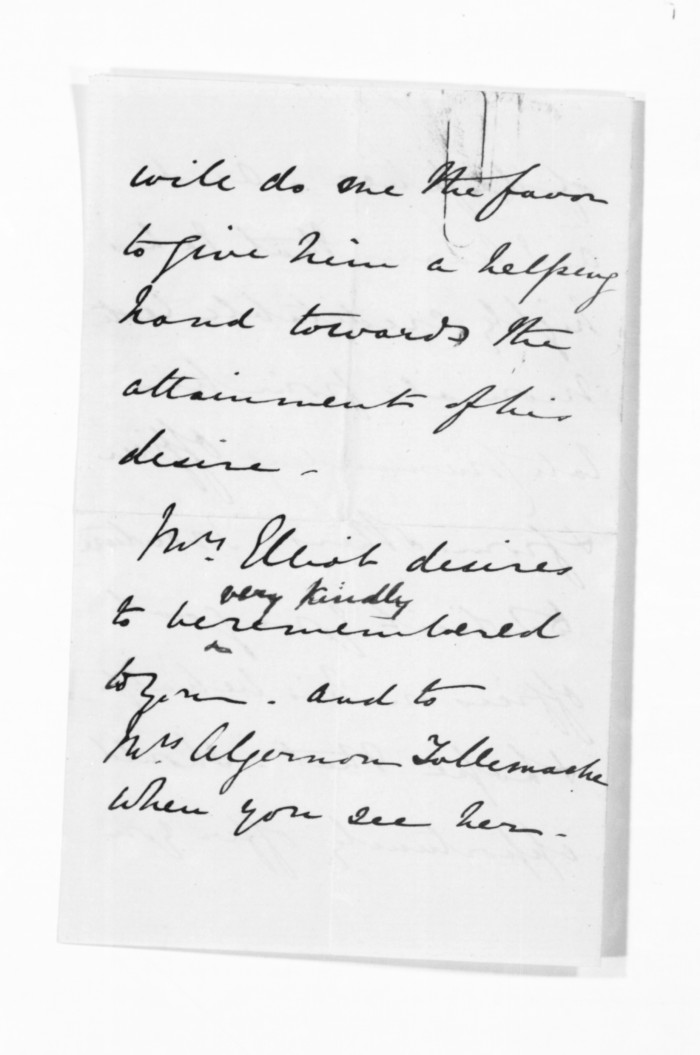 will do me the favor
to give him a helping
hand towards the
attainment of his
desire -
Mrs. Elliot desires
very kindly
to be remembered
to you - and to
Mrs Algernon Tollemache
when you see her -